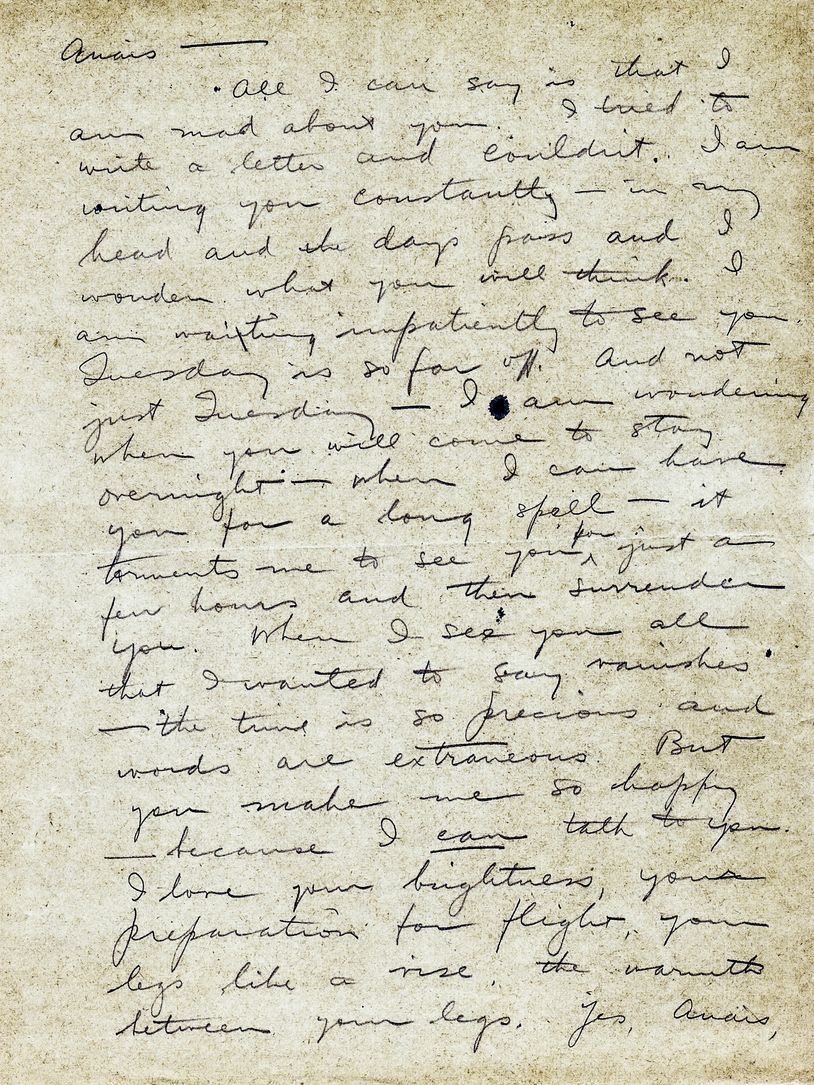 Anais —
All I can say is that I
am mad about you. I tried to
write a letter and couldn't. I am
writing you constantly — in my
head and the days pass and I
wonder what you will think. I
am waiting impatiently to see you.
Tuesday is so far off. And not
just Tuesday — I am wondering
when you will come to stay
overnight — when I can have
you for a long spell — it
torments me to see you for just a
few hours and then surrender
you. When I see you all
that I wanted to say vanishes
— the time is so precious and
words are extraneous. But
you make me so happy
— because I can talk to you.
I love your brightness, your
preparation for flight, your
legs like a vise, the warmth
between your legs. Yes, Anais,